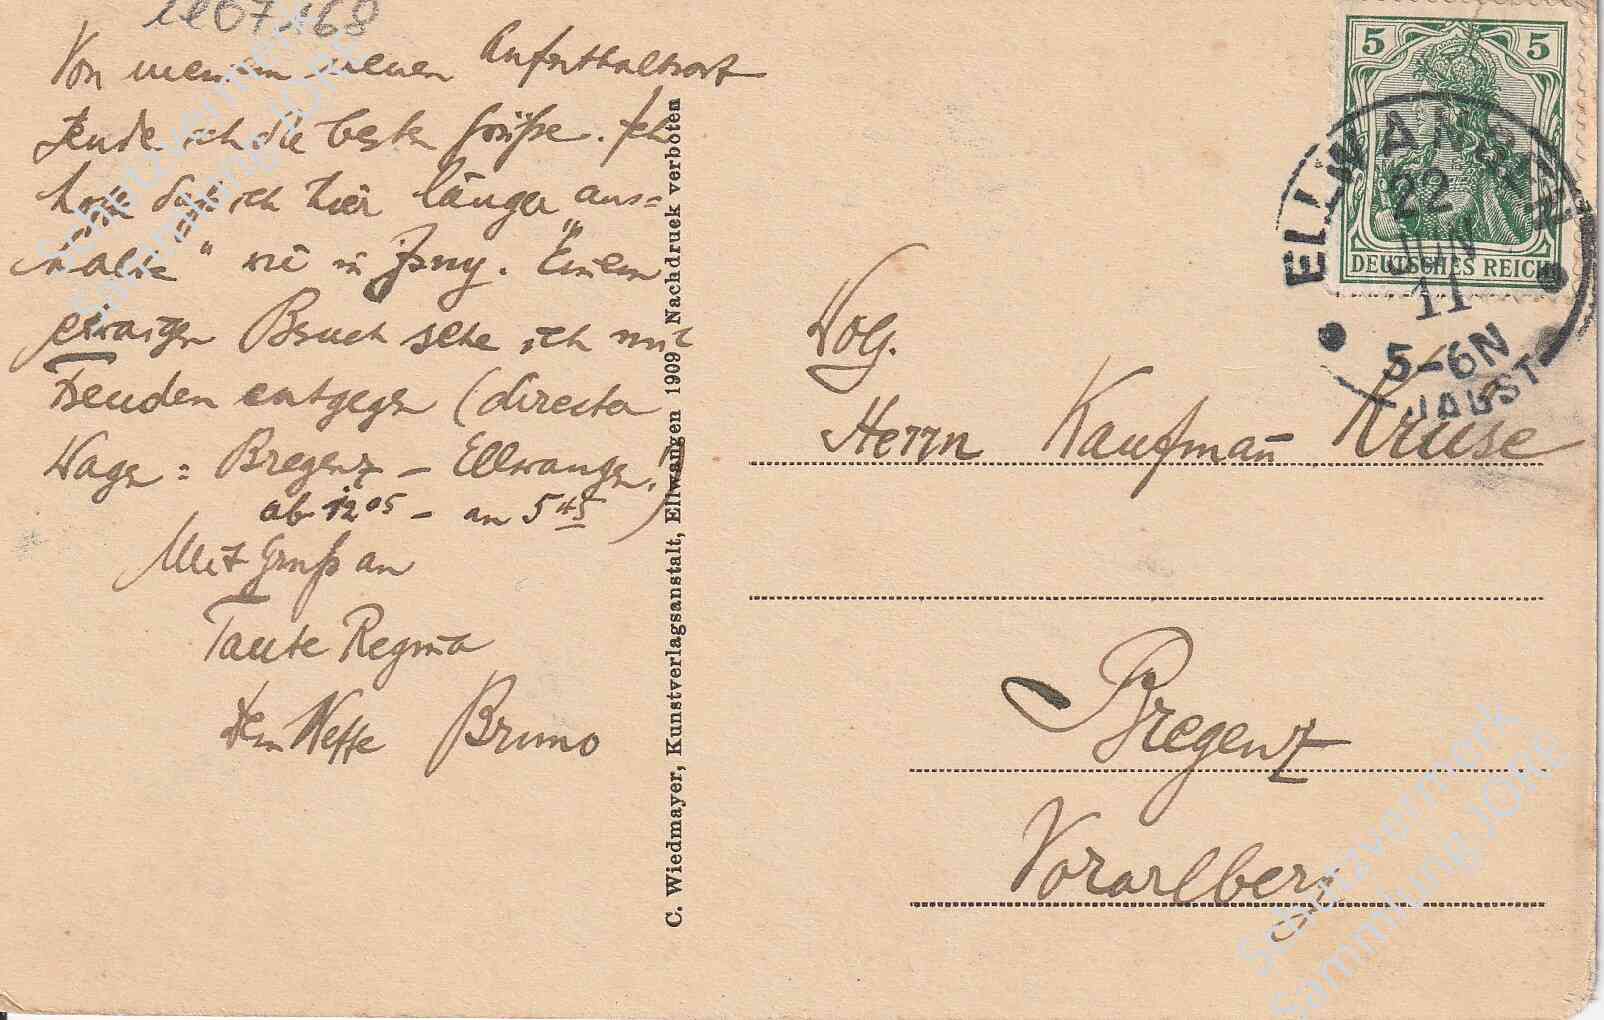 1107168
Von meinem neuen Aufenthaltsort
sende ich die besten Grüße. Ich
hoffe daß ich hier länger aus-
halte wie in Isny. Einem
etwaigen Besuch sehe ich mit
Freuden entgegen (directer
Wagen: Bregenz - Ellwangen!
ab 12 05 - an 5 45)
Mit Gruß an
Tante Regina
Dein Neffe Bruno
C. Wiedmayer, Kunstverlagsanstalt, Ellwangen 1909 Nachdruck verboten
5 5
DEUTSCHES REICH
ELLWANGEN
22
JUN
11
5-6N
JAGST
Wolg.
Herrn Kaufmann Kruse
Bregenz
Vorarlberg
Schutzvermerk
Sammlung
Schutzvermerk
Sammlung